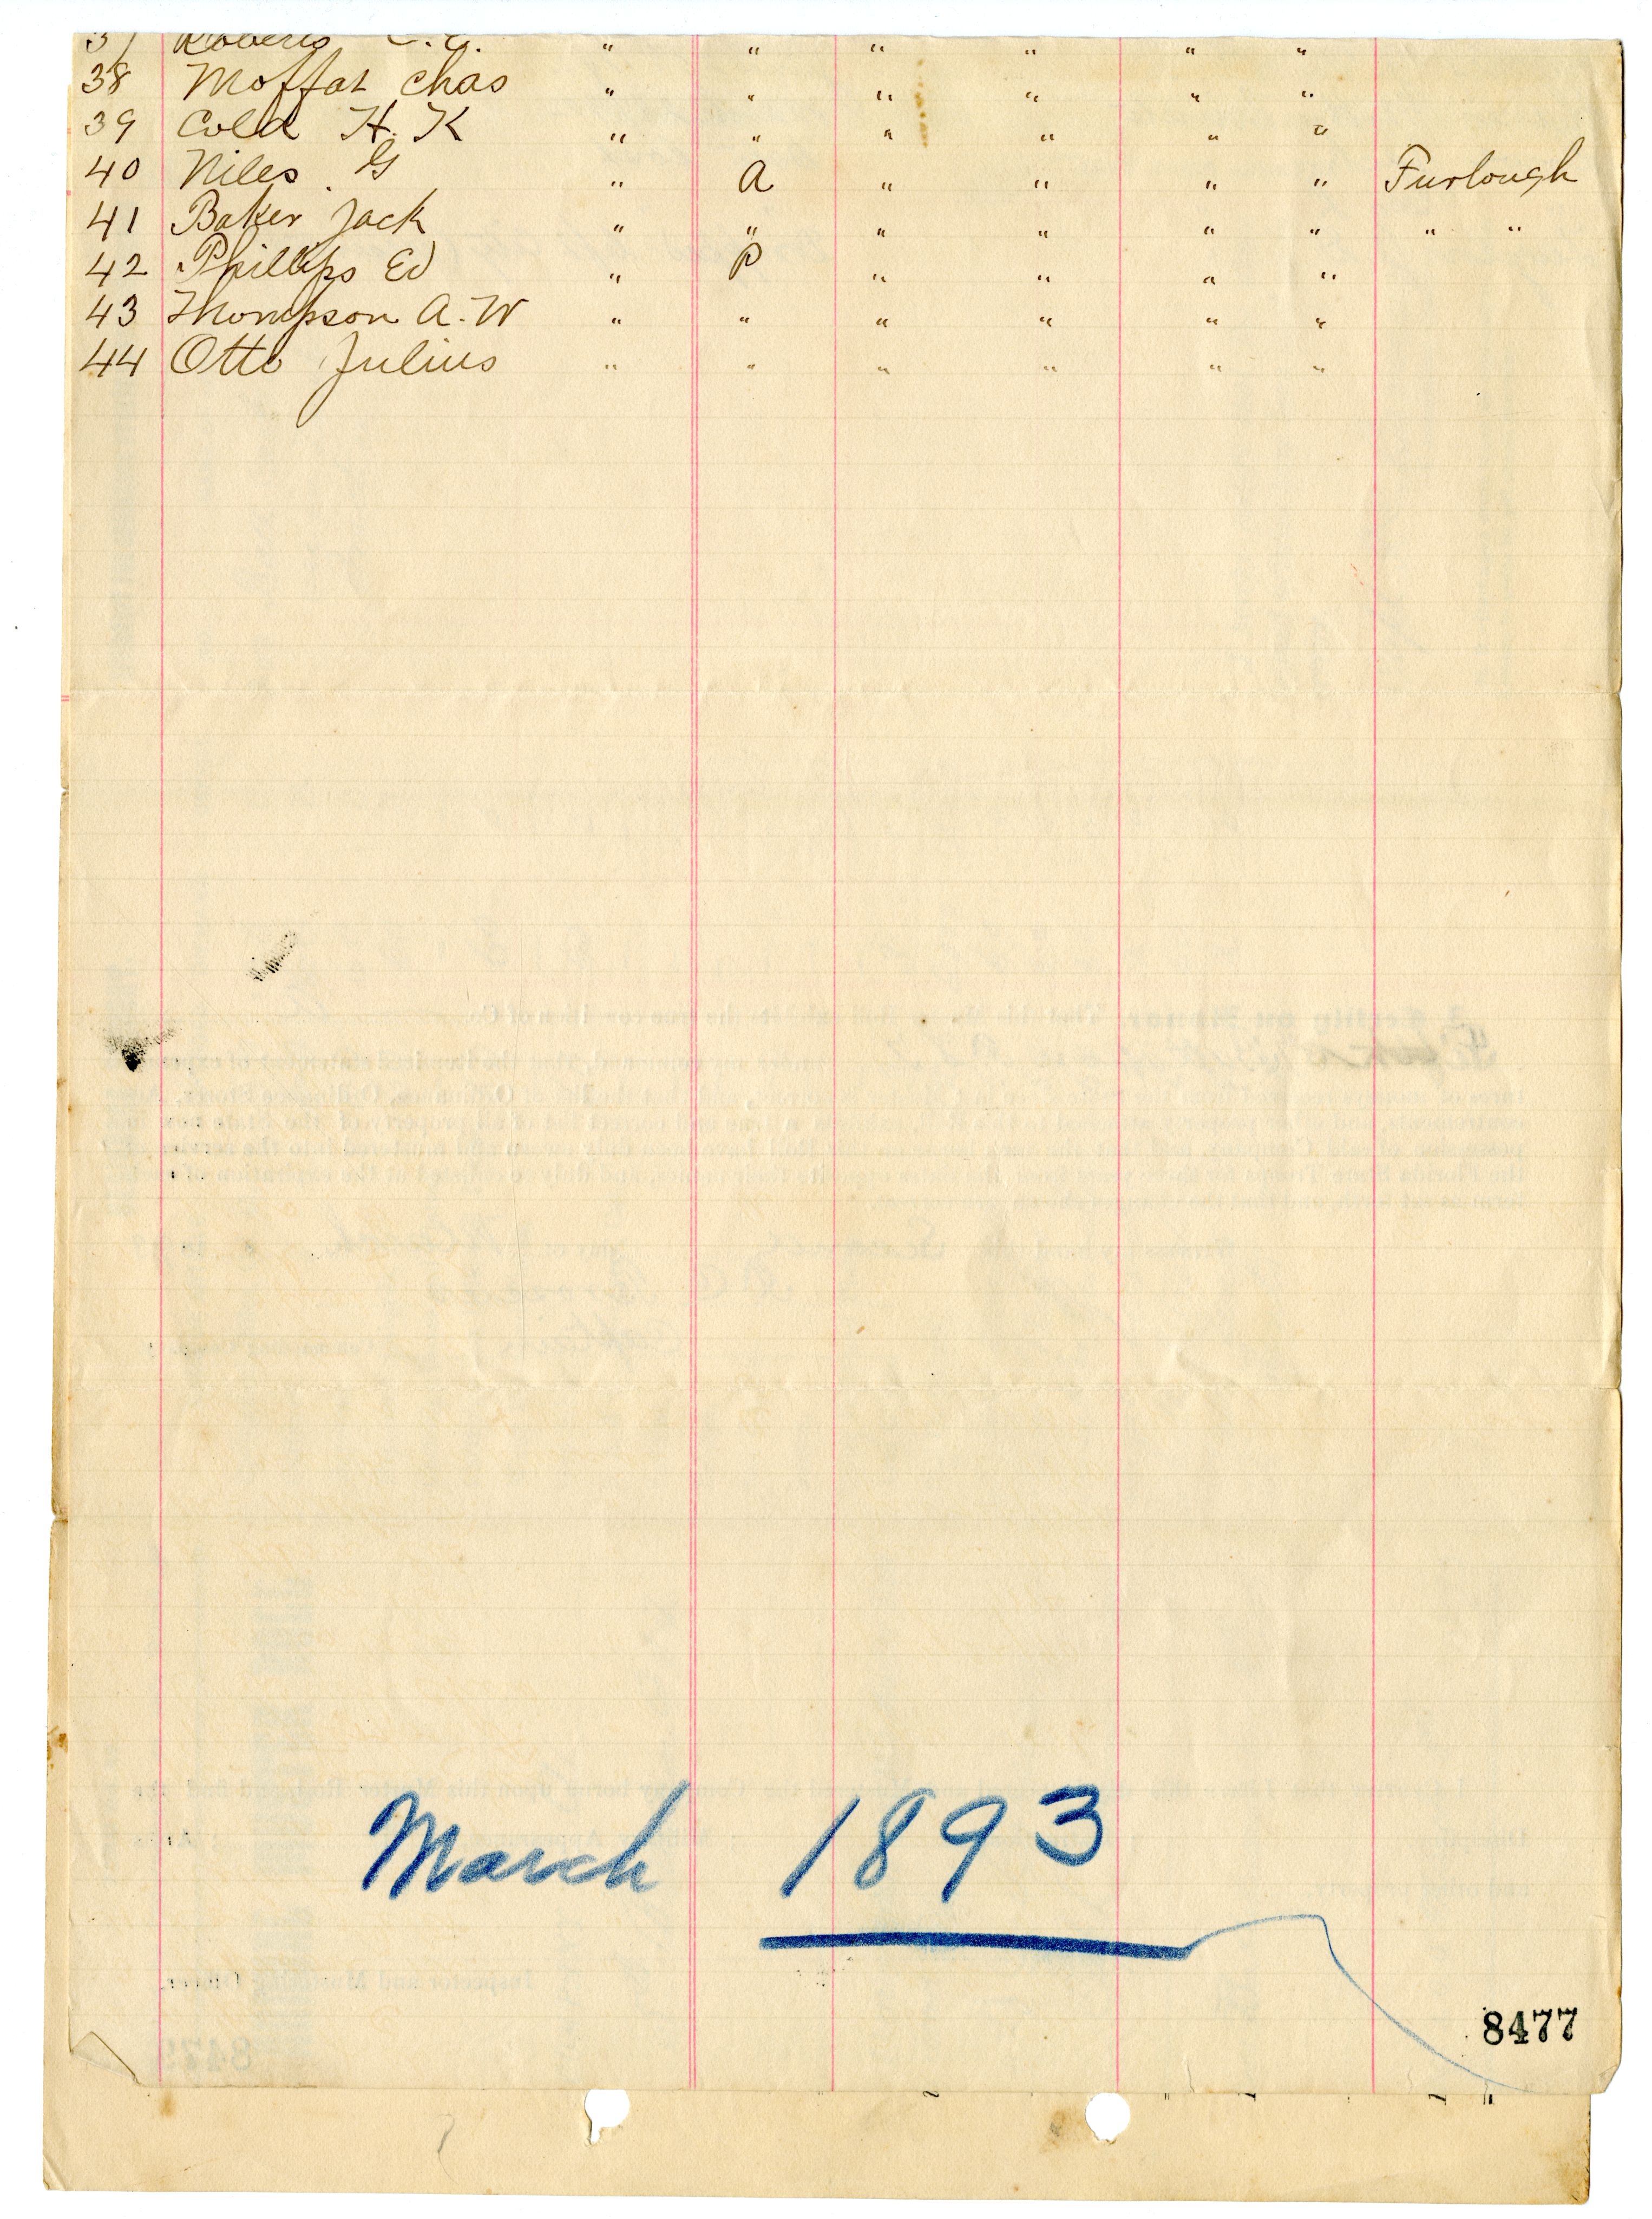 37 Roberts " " " " " "
38 Moffat Chas " " " " " "
39 Cold H. K " " " " " "
40 Niles . G " A " " " " Furlough
41 Baker Jack " " " " " " " "
42 Phillips Ed " P " " " "
43 Thompson A. W " " " " " "
44 Otto Julius " " " " " "
March 1893
8477